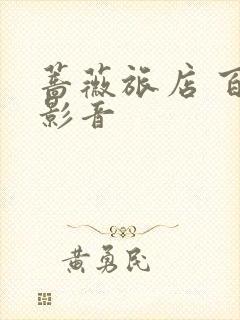 蔷薇旅店 百
影音
黄勇民